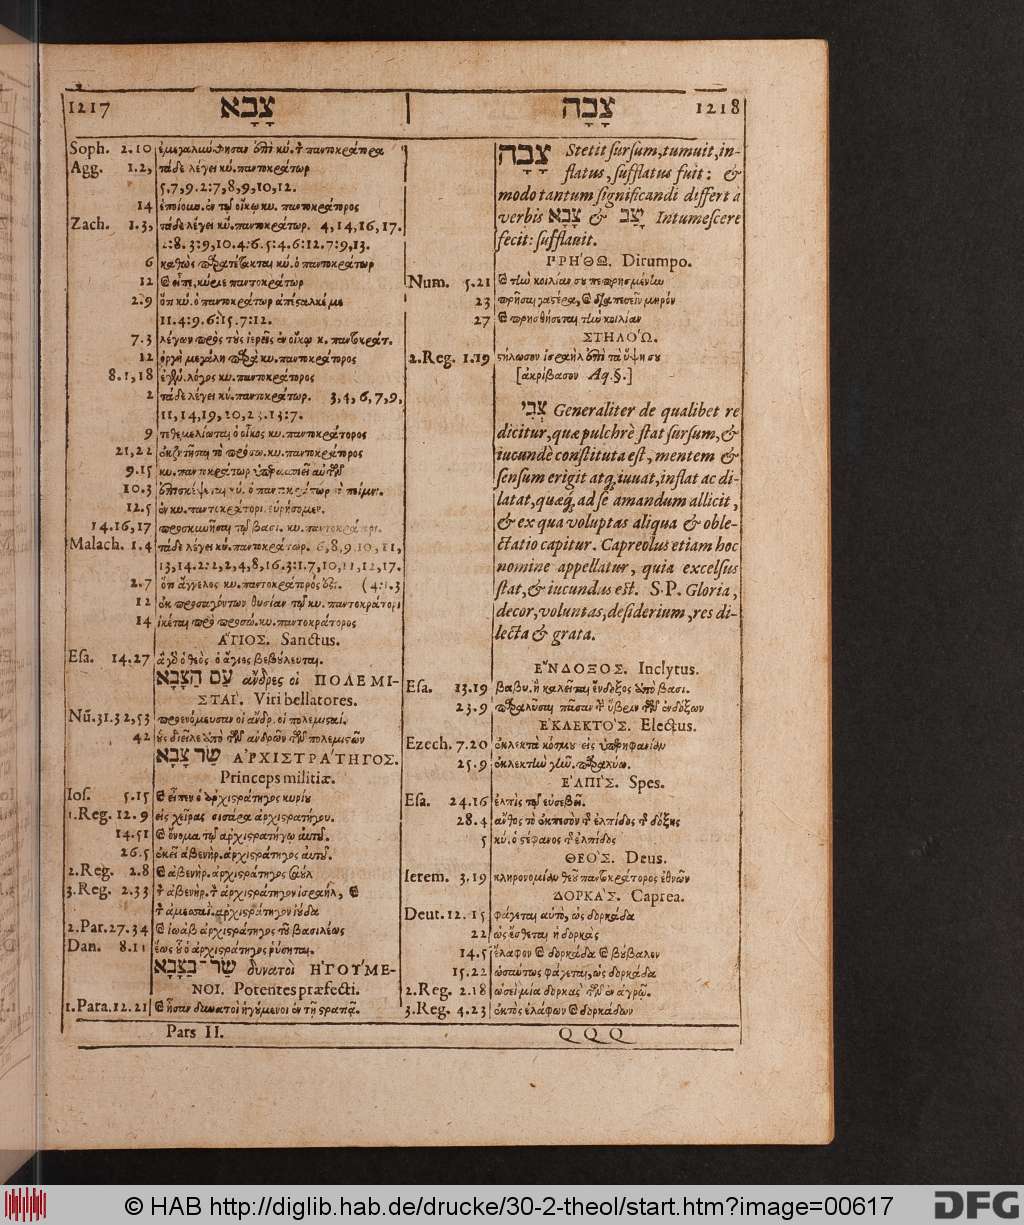 1217 צָבָא
Soph. 2.10 ἐμεγαλαύχησαν ἐπὶ κύ. τ̀ παντοκράτορα
Agg. 1.2, τάδε λέγει κύ. παντοκράτωρ
5.7, 9. 2:7, 8, 9, 10, 12.
14 ἐποίουν. ἐν τῷ οἴκῳ κυ. παντοκράτορος
Zach. 1.3, τάδε λέγει κύ. παντοκράτωρ. 4, 14, 16, 17.
2:8. 3:9, 10. 4:6. 5:4. 6:12. 7:9, 13.
6 καθὼς παρατέτακται κύ. ὁ παντοκράτωρ
12 καὶ εἶπε, κύριε παντοκράτωρ
2.9 ὅτι κύ. ὁ παντοκράτωρ ἀπέσταλκέ με
11. 4:9. 6:15. 7:12.
7.3 λέγων πρὸς τοὺς ἱερεῖς ἐν οἴκῳ κ. παντοκράτ.
12 ὀργὴ μεγάλη παρὰ κυ. παντοκράτορος
8.1,18 ἐγέν. λόγος κυ. παντοκράτορος
2 τάδε λέγει κύ. παντοκράτωρ. 3, 4, 6, 7, 9,
11, 14, 19, 20, 23. 13:7.
9 τεθεμελίωται ὁ οἶκος κυ. παντοκράτορος
21,22 ἐκζητῆσαι τὸ πρόσω. κυ. παντοκράτορος
9.15 κυ. παντοκράτωρ ὑπερασπιεῖ αὐτῶν
10.3 ἐπισκέψεται κύ. ὁ παντοκράτωρ τὸ ποίμν.
12.5 ἐν κυ. παντοκράτορι εὑρήσομεν.
14.16,17 προσκυνῆσαι τῷ βασι. κυ. παντοκράτορι.
Malach. 1.4 τάδε λέγει κύ. παντοκράτωρ. 6, 8, 9, 10, 11,
13, 14. 2:2, 4, 8, 16. 3:1, 7, 10, 11, 12, 17.
2.7 ὅτι ἄγγελος κυ. παντοκράτορός ἐστι. (4:1.3
12 ἐκ προσαγόντων θυσίαν τῷ κυ. παντοκράτορι
14 ἱκέται πρὸ προσώ. κυ. παντοκράτορος
ἍΓΙΟΣ. Sanctus.
Esa. 14.27 ἃ γὸ ὁ θεὸς ὁ ἅγιος βεβούλευται.
עַם הַצָּבָא ἄνδρες οἱ ΠΟΛΕΜΙ-
ΣΤΑΊ. Viri bellatores.
Nũ. 31.32,53 προενόμευσαν οἱ ἄνδρ. οἱ πολεμισταί.
42 οὓς διεῖλε ἀπὸ τῶν ἀνδρῶν τῶν πολεμιστῶν
שַׂר צָבָא ἈΡΧΙΣΤΡΆΤΗΓΟΣ.
Princeps militiæ.
Ios. 5.15 καὶ εἶπεν ὁ ἀρχιστράτηγος κυρίου
1.Reg. 12.9 εἰς χεῖρας σισάρα ἀρχιστρατήγου.
14.51 καὶ ὄνομα τῷ ἀρχιστρατήγῳ αὐτοῦ.
26.5 ἐκεῖ ἀβενὴρ. ἀρχιστράτηγος αὐτοῦ.
2.Reg. 2.8 καὶ ἀβενὴρ. ἀρχιστράτηγος σαοὺλ
3.Reg. 2.33 τ̀ ἀβενὴρ. τ̀ ἀρχιστράτηγον ἰσραὴλ, καὶ
τ̀ ἀμεσσαϊ. ἀρχιστράτηγον ἰούδα
2.Par. 27.34 καὶ ἰωὰβ ἀρχιστράτηγος τοῦ βασιλέως
Dan. 8.11 ἕως οὗ ὁ ἀρχιστράτηγος ῥύσηται.
שַׂר־בַצָּבָא δυνατοὶ ἩΓΟΎΜΕ-
ΝΟΙ. Potentes præfecti.
1.Para. 12.21 καὶ ἦσαν δυνατοὶ ἡγούμενοι ἐν τῇ στρατιᾷ.
Pars II.
צָבָה 1218
צָבָה Stetit sursum, tumuit, in-
flatus, sufflatus fuit: &
modo tantum significandi differt à
verbis צָבָא & יָצַב Intumescere
fecit: sufflavit.
ΠΡΉΘΩ. Dirumpo.
Num. 5.21 καὶ τὴν κοιλίαν σου πεπρησμένην
23 πρῆσαι γαστέρα, καὶ διαπεσεῖν μηρόν
27 καὶ πρησθήσεται τὴν κοιλίαν
ΣΤΗΛΌΩ.
2.Reg. 1.19 στήλωσον ἰσραὴλ ἐπὶ τὰ ὕψη σου
[ἀκρίβασον Aq. §.]
צְבִי Generaliter de qualibet re
dicitur, quæ pulchrè stat sursum, &
iucundè constituta est, mentem &
sensum erigit atq; iuuat, inflat ac di-
latat, quæq; ad se amandum allicit,
& ex qua voluptas aliqua & oble-
ctatio capitur. Capreolus etiam hoc
nomine appellatur, quia excelsus
stat, & iucundus est. S.P. Gloria,
decor, voluntas, desiderium, res di-
lecta & grata.
ἜΝΔΟΞΟΣ. Inclytus.
Esa. 13.19 βαβυ. ἣ καλεῖται ἔνδοξος ὑπὸ βασι.
23.9 παραλῦσαι πᾶσαν τ̀ ὕβριν τῶν ἐνδόξων
ἘΚΛΕΚΤΌΣ. Electus.
Ezech. 7.20 ἐκλεκτὰ κόσμου εἰς ὑπερηφανίαν
25.9 ἐκλεκτὴν γῆν. παραλύω.
ἘΛΠΊΣ. Spes.
Esa. 24.16 ἐλπὶς τῷ εὐσεβεῖ.
28.4 ἄνθος τὸ ἐκπεσὸν τ̀ ἐλπίδος τ̀ δόξης
5 κύ. ὁ στέφανος τ̀ ἐλπίδος
ΘΕΌΣ. Deus.
Ierem. 3.19 κληρονομίαν θεοῦ παντοκράτορος ἐθνῶν
ΔΟΡΚΆΣ. Caprea.
Deut. 12.15 φάγεται αὐτὸ, ὡς δορκάδα
22 ὡς ἔσθεται ἡ δορκὰς
14.5 ἔλαφον καὶ δορκάδα καὶ βύβαλον
15.22 ὡσαύτως φάγεται, ὡς δορκάδα
2.Reg. 2.18 ὡσεὶ μία δορκὰς τῶν ἐν ἀγρῷ.
3.Reg. 4.23 ἐκτὸς ἐλάφων καὶ δορκάδων
QQQ
© HAB http://diglib.hab.de/drucke/30-2-theol/start.htm?image=00617
DFG